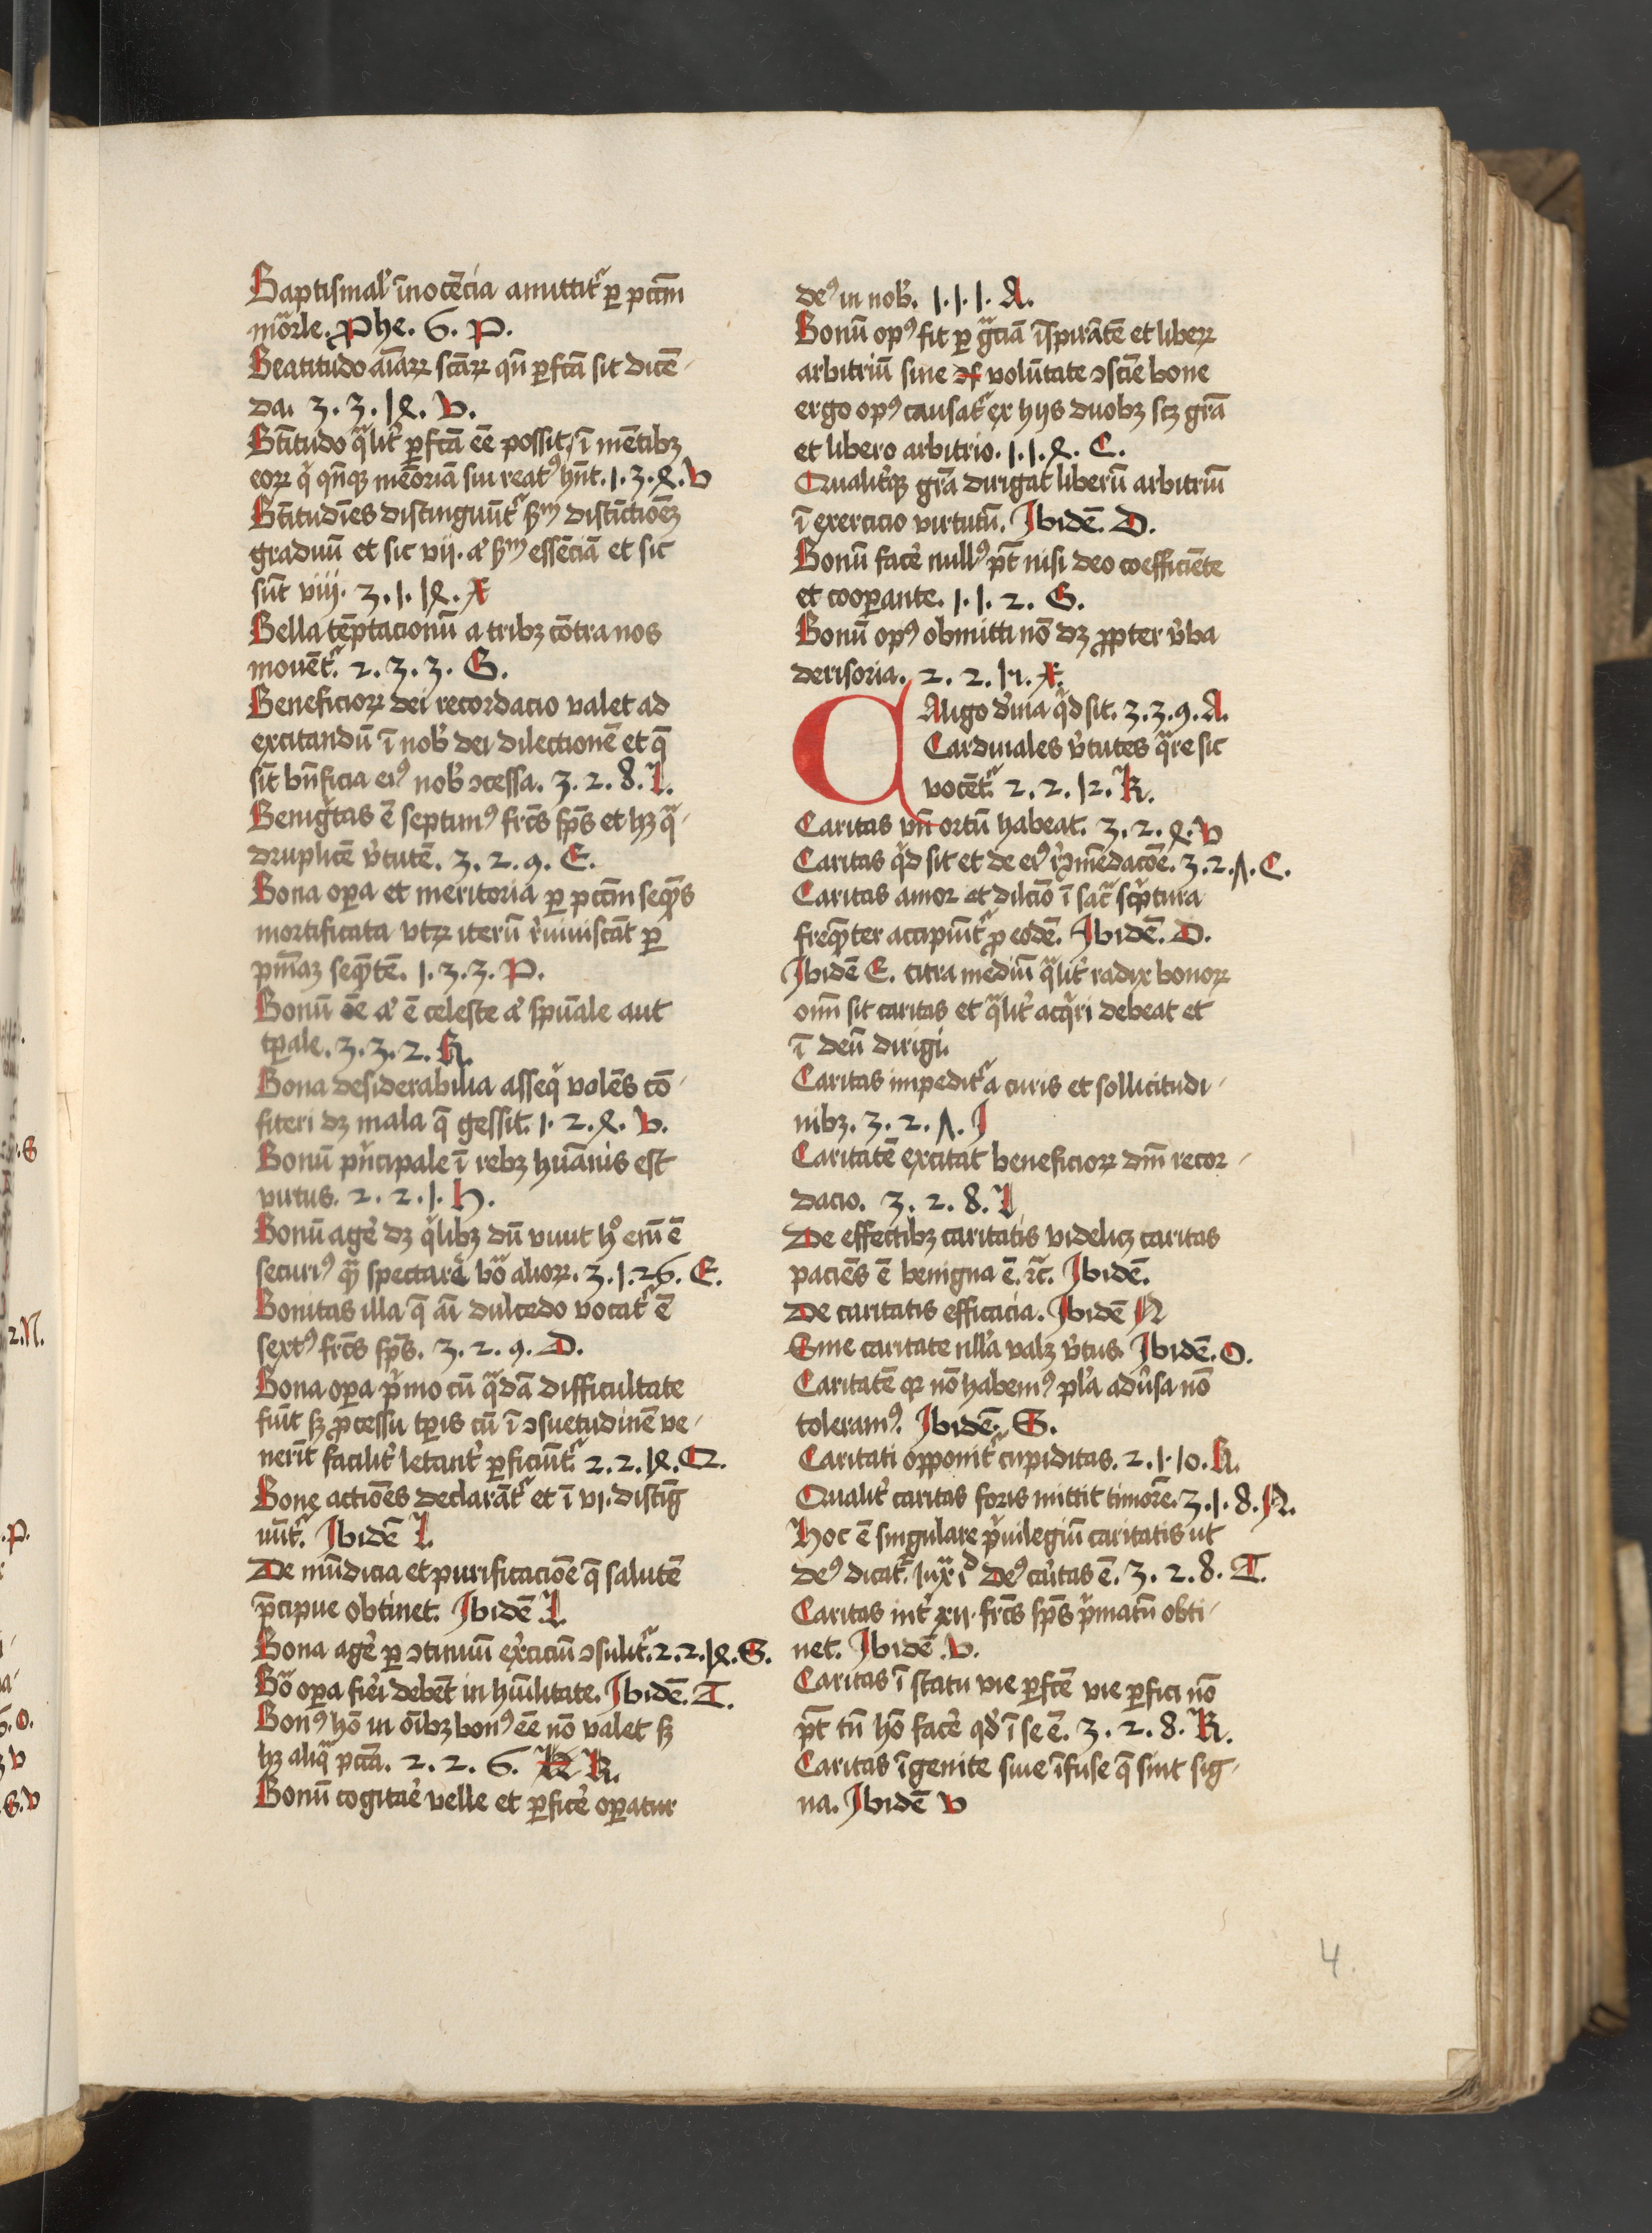 Baptismal' īnocēcia amittit᷑ ꝑ pctm̄
mōrle. Phe. 6. P.
Beatitudo aīaꝝ scāꝝ qn̄ ꝑfcā sit dicē-
da. 3. 3. 18. V.
Bt̄itudo qͣlit᷑ ꝑfcā eē possit ī mētibꝫ
eoꝝ qͥ qn̄qꝫ mēoriā sui reatꝰ hn̄t. 1. 3. 8. V
Bt̄itudīes distinguūt᷑ scꝺ̄m distīctiōēꝫ
graduū et sic vij. aꝰ scꝺ̄m essēciā et sic
sūt viij. 3. 1. 18. X
Bella tēptacionū a tribꝫ cōtra nos
mouēt᷑. 2. 3. 3. G.
Beneficioꝝ dei recordacio valet ad
excitandū ī nob̉ dei dilectionē et q̄
sīt bn̄ficia eiꝰ nob̉ ↄcessa. 3. 2. 8. L.
Benigͥtas ē septimꝰ frc̄s sp̄s et hꝫ qͣ-
druplicē v̉tutē. 3. 2. 9. E.
Bona oꝑa et meritoria ꝑ pctm̄ seqͥēs
mortificata vtꝝ iterū r̉viuiscāt ꝑ
pniāꝫ seqͥētē. 1. 3. 3. P.
Bonū oē aꝰ ē celeste aꝰ spūale aut
tꝑale. 3. 3. 2. H.
Bona desiderabilia asseqͥ volēs cō-
fiteri dꝫ mala q̄ gessit. 1. 2. 8. V.
Bonū pͥncipale ī rebꝫ huānis est
virtus. 2. 2. 1. H.
Bonū ager̉ dꝫ qͥlibꝫ dū viuit hͦ em̄ ē
securiꝰ qͣꝫ spectare bōͣ alioꝝ. 3. 1. 26. E.
Bonitas illa q̄ aī dulcedo vocat᷑ ē
sextꝰ frc̄s sp̄s. 3. 2. 9. D.
Bona oꝑa pͥmo cū qͣdā difficultate
fiūt sꝫ ꝓcessu tꝑis cū ī ↄsuetudinē ve-
nerīt facilit᷑ letant᷑ ꝑficiūt᷑. 2. 2. 18. Q.
Bone actiōes declarāt᷑ et ī vi. distīg
uūt᷑. Ibidē I.
De mūdicia et purificaciōe q̄ salutē
p̄cipue obtinet. Ibidē L
Bona ager̉ ꝑ ↄtinuū ex̉ciciū ↄsulit᷑. 2. 2. 18. S.
Bōͣ oꝑa fier̉i debēt in hūilitate. Ibidē. T.
Bonꝰ hō in oībꝫ bonꝰ eē nō valet sꝫ
hꝫ aliqͣ pctā. 2. 2. 6. R.
Bonū cogitar̉e velle et ꝑficer̉ oꝑatur
deꝰ in nob̉. 1. 1. 1. A.
Bonū opꝰ fit ꝑ gͣciā īspirātē et libeꝝ
arbitriū sine volūtate ↄsciē bone
ergo opꝰ causat᷑ ex hijs duobꝫ scꝫ grā
et libero arbitrio. 1. 1. 8. C.
Qualit᷑qꝫ grā dirigat liberū arbitriū
ī exercicio virtutū. Ibidē. D.
Bonū facer̉ nullꝰ pt̄ nisi deo coefficiēte
et cooꝑante. 1. 1. 2. G.
Bonū opꝰ obmitti nō dꝫ ꝓpter v̉ba
derisoria. 2. 2. 14. X.
CAligo d̉ina qͥd sit. 3. 3. 9. A.
Cardinales v̉tutes qͣre sic
vocēt᷑. 2. 2. 12. R.
Caritas vn̄ ortū habeat. 3. 2. 8. V
Caritas qͥd sit et de eiꝰ r̉ↄmēdacōe. 3. 2. 7. C.
Caritas amor et dilcīo ī sacͣ scͥptura
freqͥēter accipiūt᷑ ꝓ eodē. Ibidē. D.
Ibidē E. citra mediū qͣlit᷑ radix bonoꝝ
oīm sit caritas et qͣlit᷑ acqͥri debeat et
ī deū dirigi.
Caritas impedit᷑ a curis et sollicitudi-
nibꝫ. 3. 2. 7. I
Caritatē excitat beneficioꝝ dm̄ recor-
dacio. 3. 2. 8. L
De effectibꝫ caritatis videlicꝫ caritas
paciēs ē benigna ē. ⁊c̄. Ibidē.
De caritatis efficacia. Ibidē N
Sine caritate nlla valꝫ v̉tus. Ibidē. O.
Caritatē qꝛ nō habemꝰ pl'a adūsa nō
toleramꝰ. Ibidē. S.
Caritati opponit᷑ cupiditas. 2. 1. 10. H.
Qualit᷑ caritas foris mittit timorē. 3. 1. 8. N.
Hoc ē singulare pͥuilegiū caritatis ut
deꝰ dicat᷑. iuxͣ iᵈ Deꝰ car̉itas ē. 3. 2. 8. T.
Caritas int᷑ xii. frc̄s sp̄s pͥmatū obti-
net. Ibidē. V.
Caritas ī statu vie ꝑfcē vie ꝑfici nō
pt̄ tn̄ hō facer̉ qd̉ ī se ē. 3. 2. 8. R.
Caritas īgenite siue īfuse q̄ sint sig-
na. Ibidē V
4.